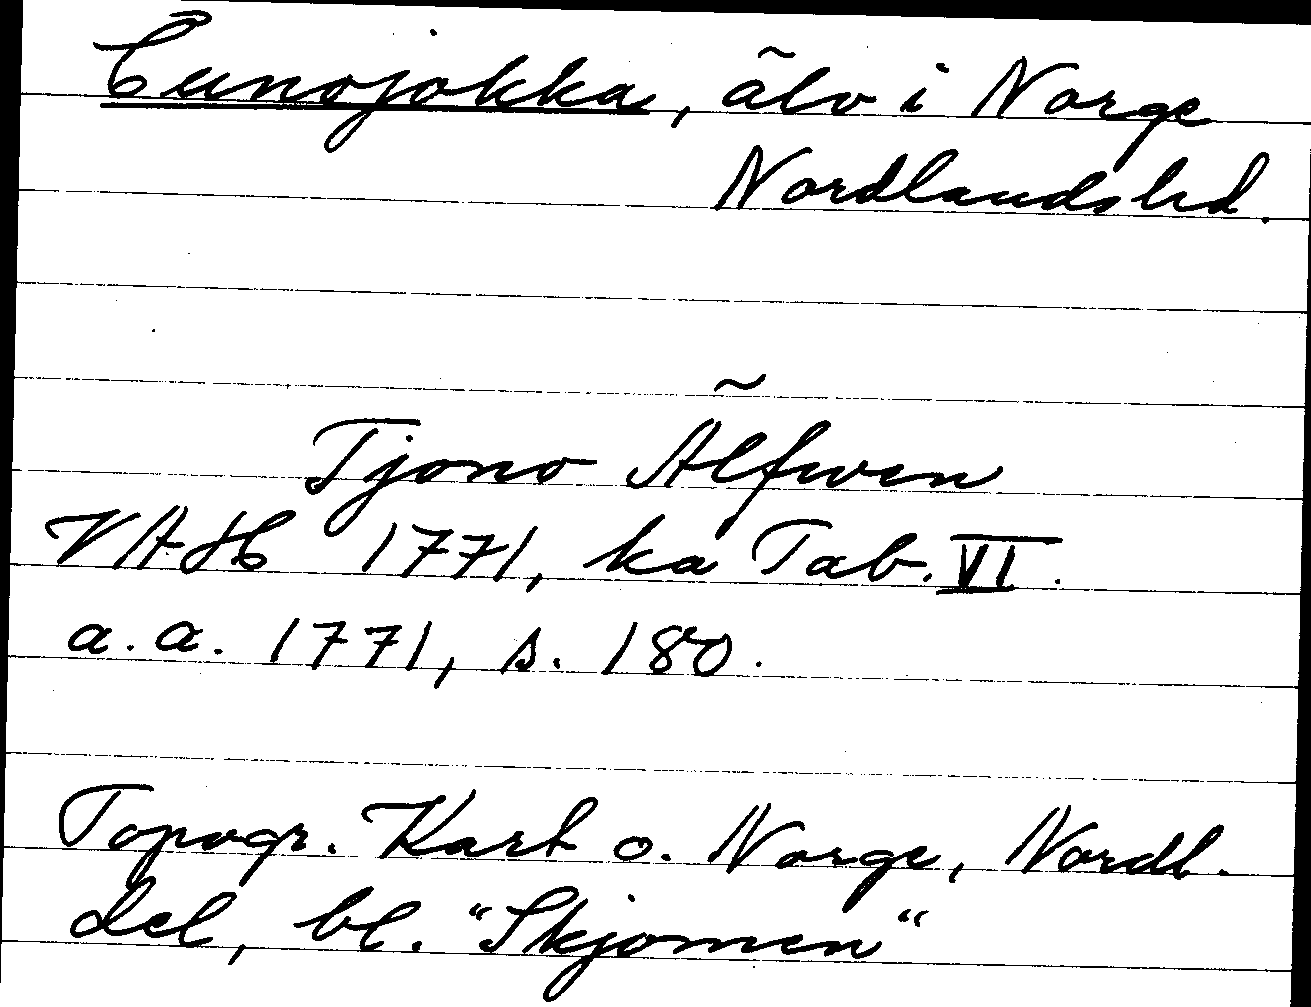 Cunojokka, älv i Norge
Nordlands led.
Tjono Älfwen
VAH 1771, ka Tab. VI.
a.a. 1771, s. 180.
Topogr. Kart o. Norge, Nordl.
del, bl. "Skjomen"